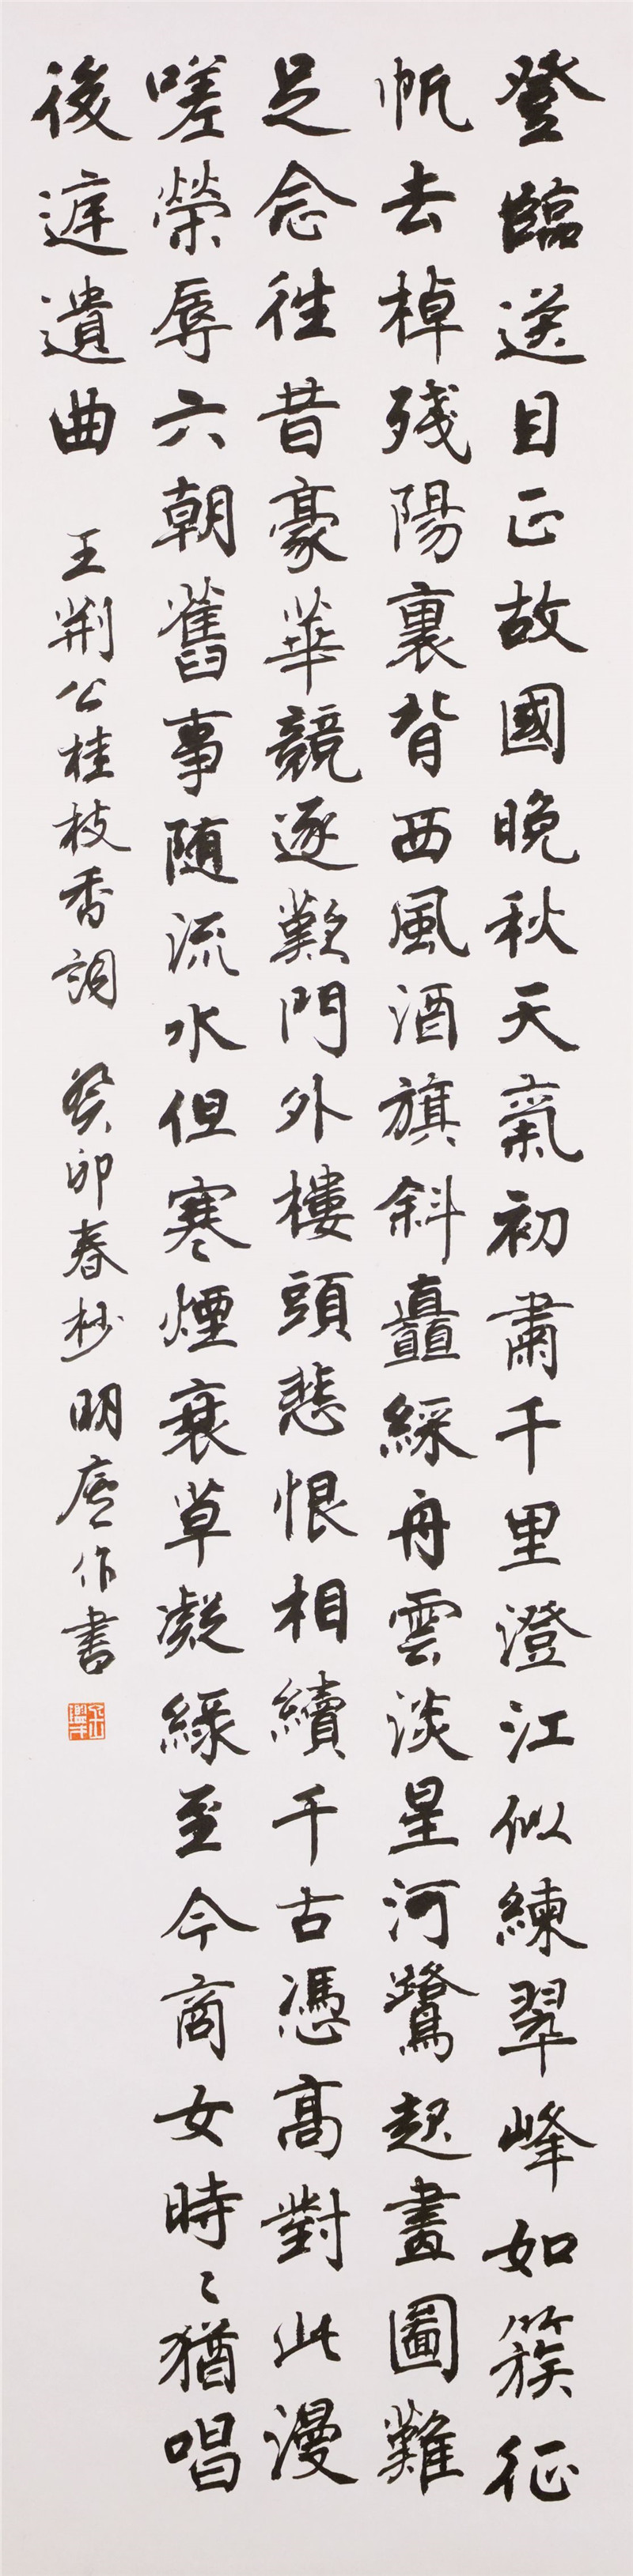 登臨送目正故國晚秋天氣初肅千里澄江似練翠峰如簇征
帆去棹殘陽裏背西風酒旗斜矗綵舟雲淡星河鷺起畫圖難
足念往昔豪華競逐歎門外樓頭悲恨相續千古憑高對此漫
嗟榮辱六朝舊事随流水但寒煙衰草凝綠至今商女時〻猶唱
後庭遺曲 王荊公桂枝香詞 癸卯春杪明廬作書